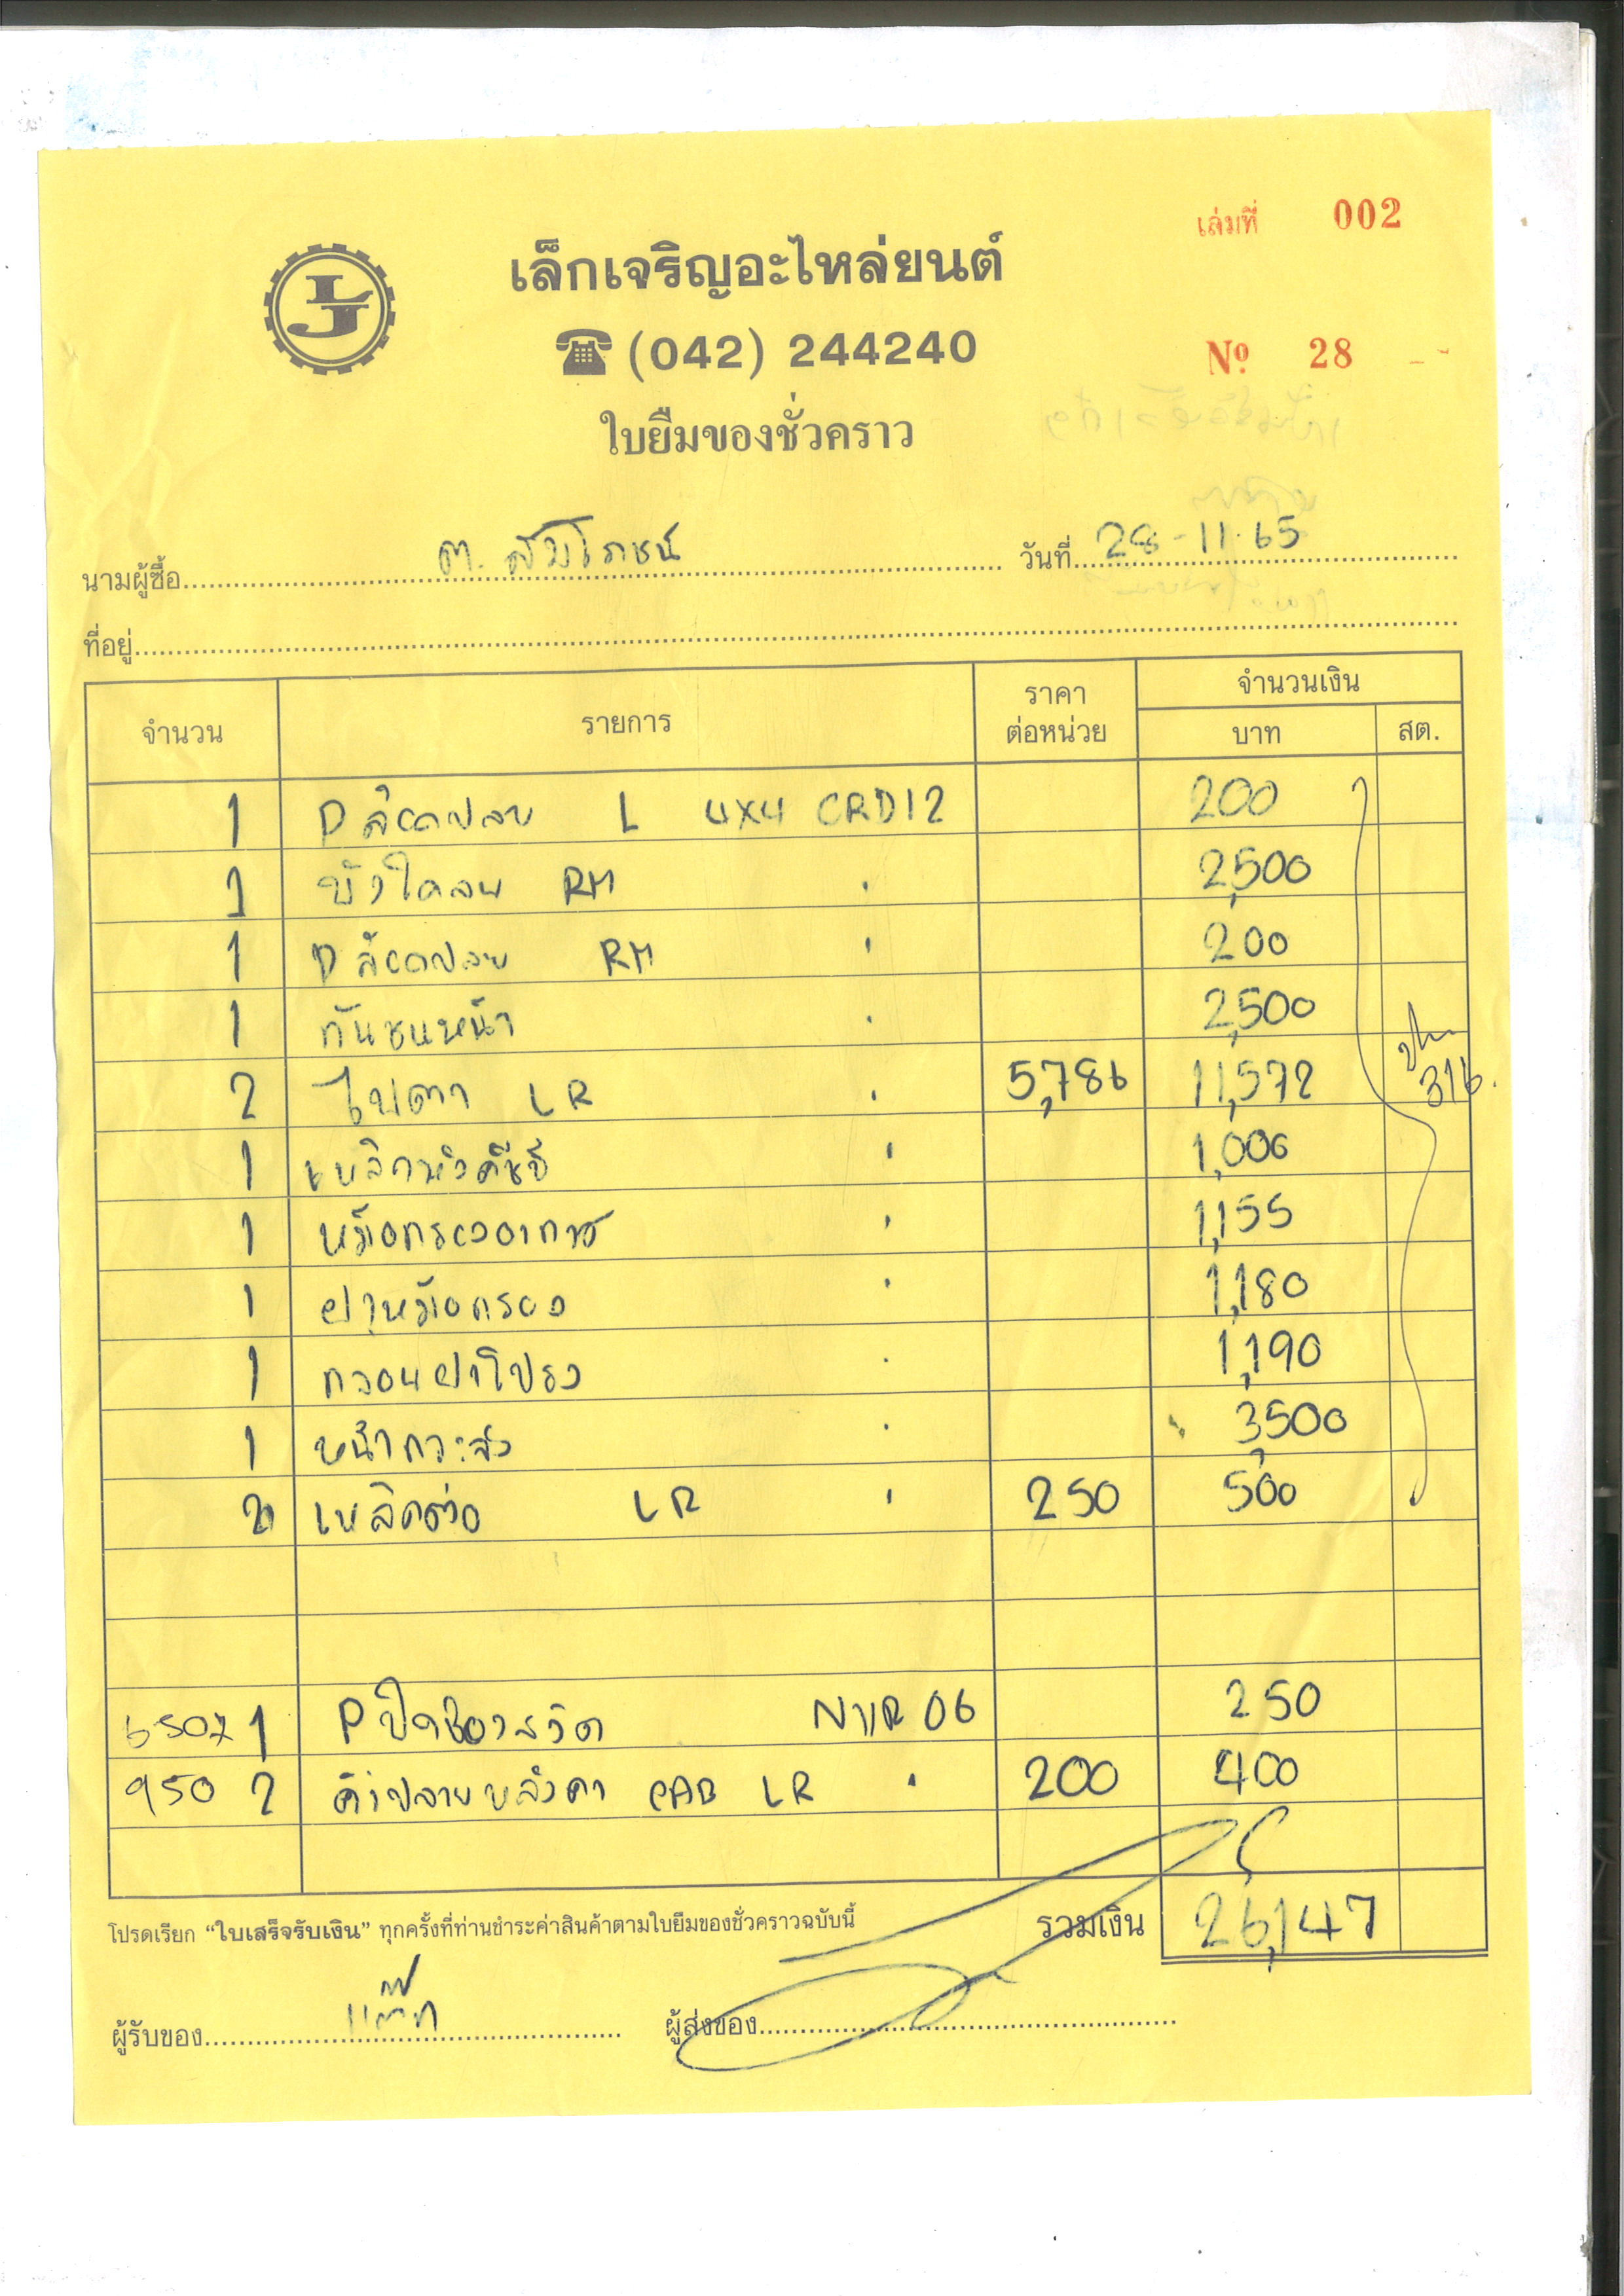 เล่มที่ 002
LJ
เล็กเจริญอะไหล่ยนต์
☎ (042) 244240
Nº 28
ใบยืมของชั่วคราว
นามผู้ซื้อ ต. สัมโภชน์ วันที่ 28-11-65
ที่อยู่
จำนวน รายการ ราคาต่อหน่วย จำนวนเงิน
บาท สต.
1 P L 4X4 CRD12 200
1 บังโคลน RM 2,500
1 P RM 200
1 กันชนหน้า 2,500
2 ไฟตา LR 5,786 11,572
1 1,006
1 หม้อกรองอากาศ 1,155
1 ฝาหม้อกรอง 1,180
1 กลอนฝาโปรง 1,190
1 หน้ากระจัง 3,500
2 LR 250 500
316.
6507 1 P NKR 06 250
950 2 คิ้วปลายหลังคา CAB LR 200 400
โปรดเรียก “ใบเสร็จรับเงิน” ทุกครั้งที่ท่านชำระค่าสินค้าตามใบยืมของชั่วคราวฉบับนี้ รวมเงิน 26,147
ผู้รับของ ผู้ส่งของ